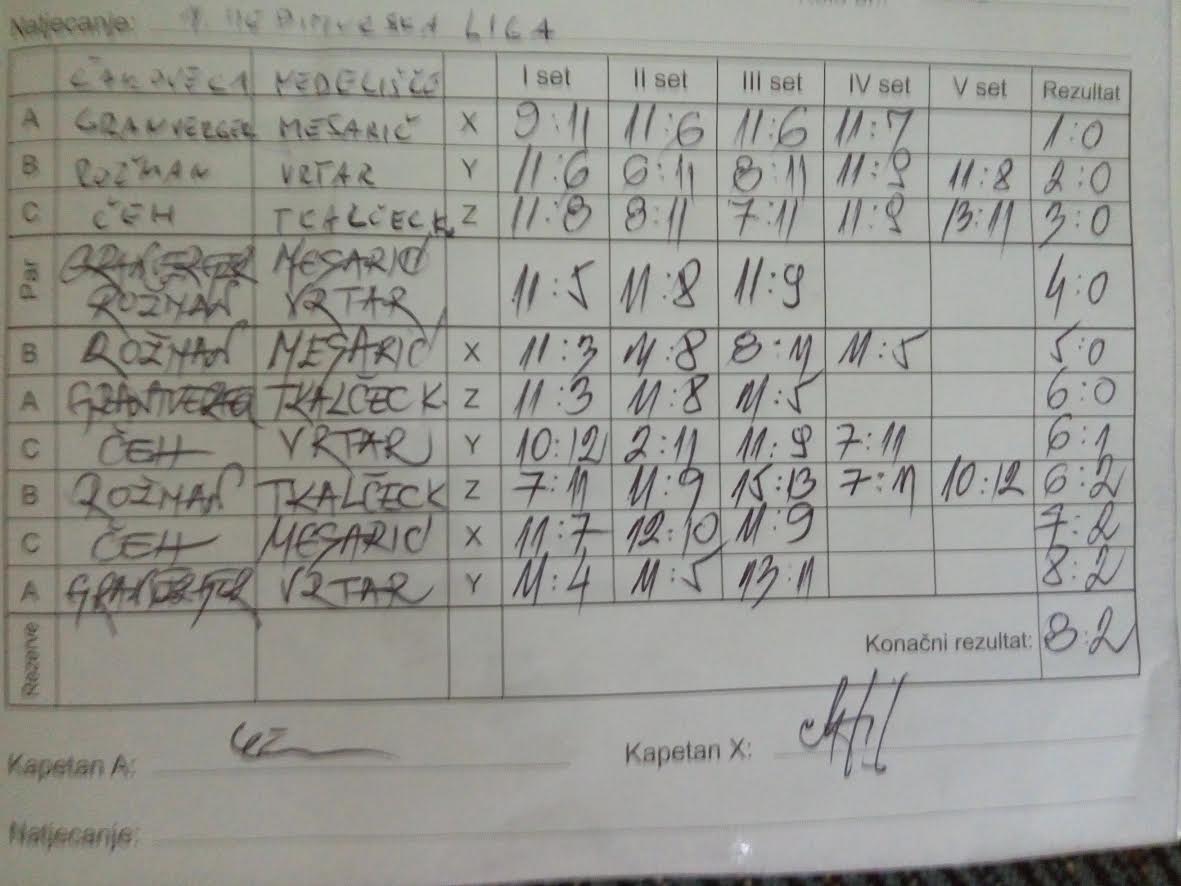 Natjecanje: LIGA
I set II set III set IV set V set Rezultat
A GRANVERGER MESARIČ X 9:11 11:6 11:6 11:7 1:0
B ROŽMAN VRTAR Y 11:6 6:11 8:11 11:9 11:8 2:0
C ČEH TKALČECK Z 11:8 8:11 7:11 11:9 13:11 3:0
Par MESARIĆ 11:5 11:8 11:9 4:0
ROŽMAN VRTAR
B ROŽMAN MESARIĆ X 11:3 11:8 8:11 11:5 5:0
A TKALČECK Z 11:3 11:8 11:5 6:0
C ČEH VRTAR Y 10:12 2:11 11:9 7:11 6:1
B ROŽMAN TKALČECK Z 7:11 11:9 15:13 7:11 10:12 6:2
C ČEH MESARIĆ X 11:7 12:10 11:9 7:2
A VRTAR Y 11:4 11:5 13:11 8:2
Rezerve Konačni rezultat: 8:2
Kapetan A: Kapetan X:
Natjecanje: